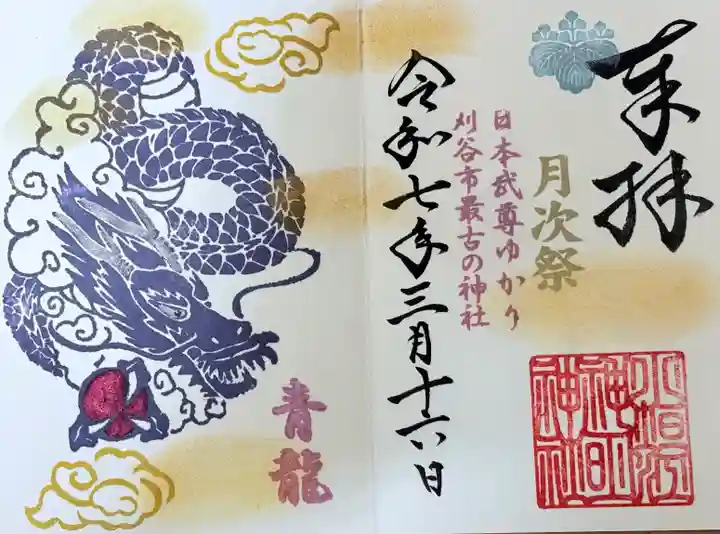 奉拝
月次祭
日本武尊ゆかり
刈谷市最古の神社
小垣江
神明
神社
令和七年三月十六日
青龍